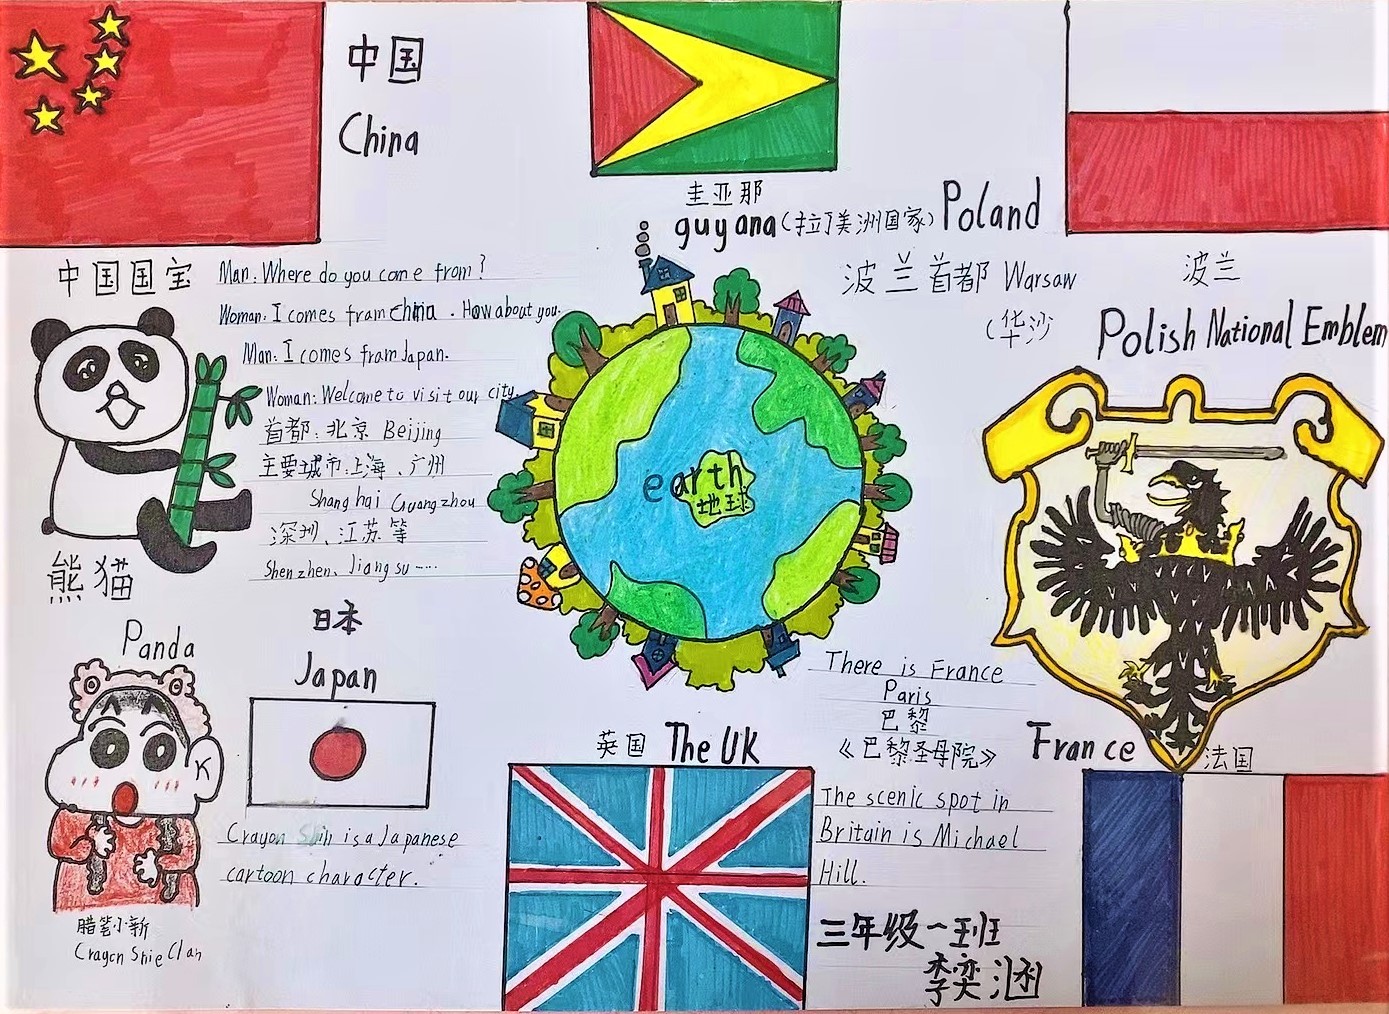 中国
China
圭亚那
guyana(拉丁美洲国家)
Poland
波兰首都 Warsaw
(华沙
波兰
Polish National Emblem
中国国宝
Man: Where do you come from?
Woman: I comes fram china . How about you.
Man: I comes fram Japan.
Woman: Welcome to visit our city
首都:北京 Beijing
主要城市:上海、广州
Shanghai Guangzhou
深圳、江苏等
Shenzhen、Jiangsu……
熊猫
Panda
earth
地球
日本
Japan
Crayon Shin is a Japanese
cartoon character.
腊笔小新
Crayon Shie Clan
英国 The UK
There is France
Paris
巴黎
《巴黎圣母院》
France 法国
The scenic spot in
Britain is Michael
Hill.
三年级一班
李奕涵